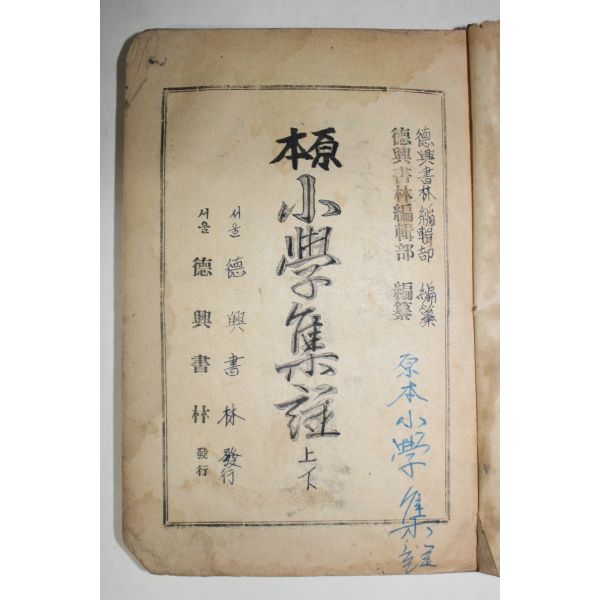 德興書林編輯部 編纂
德興書林編輯部 編纂
原本小學集註
原本
小學集註
上下
서울 德興書林 發行
서울 德興書林 發行